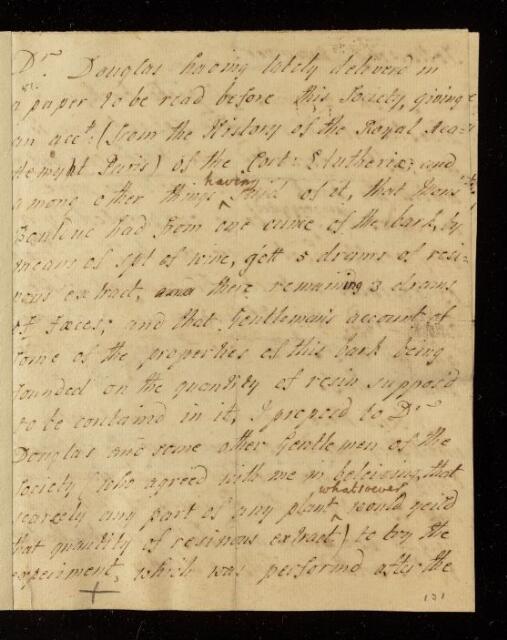 Dr. Douglas having lately deliverd in
a paper to be read before this Society, giving
an acct: (from the History of the Royal Aca-
demy at Paris) of the Cort: Elutheriæ; and
among other things having said of it, that Mons
Boulduc had from one ounce of the bark, by
means of spt of wine, gott 5 drams of resi-
nous extract, there remaining 3 drams
of Fæces; and that Gentleman's account of
some of the properties of this bark being
founded on the quantity of resin suppos'd
to be contain'd in it, I propos'd to Dr.
Douglas and some other Gentlemen of the
Society (who agreed with me in beleiving that
scarcely any part of any plant whatsoever would yeild
that quantity of resinous extract) to try the
experiment, which was performd after the
131